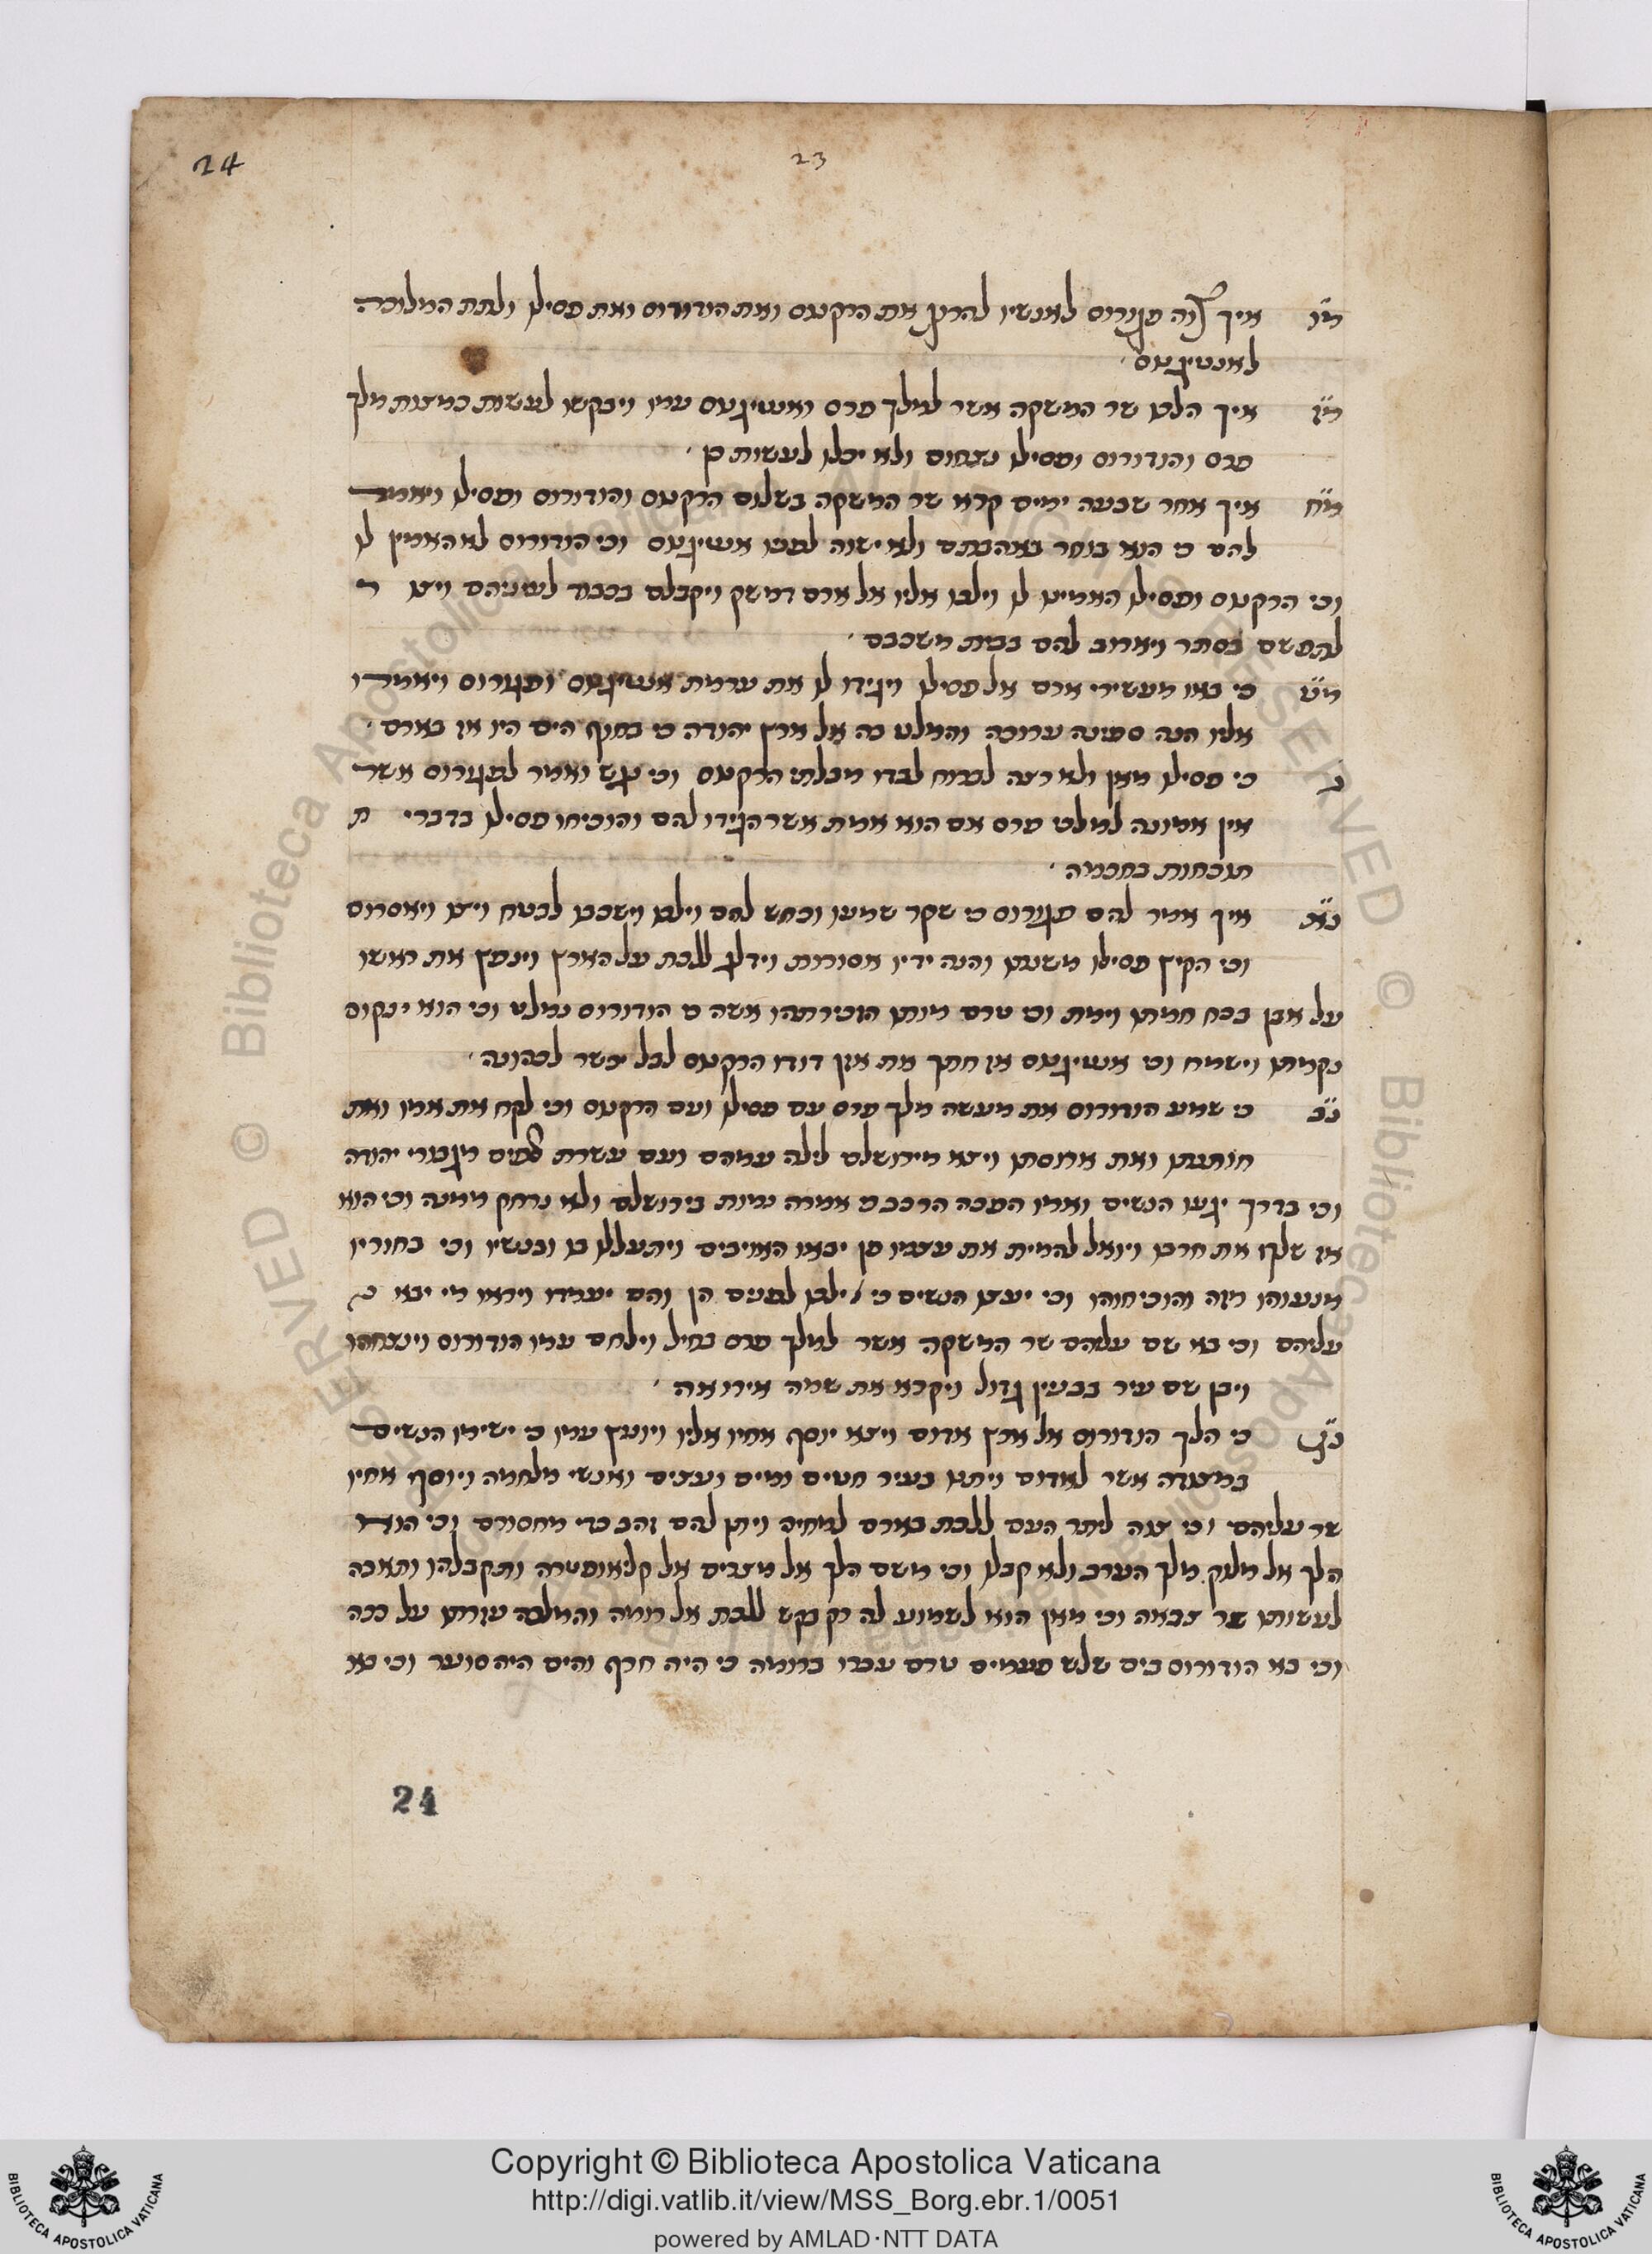 24
23
מ"ו איך צוה פגורוס לאנשיו להרוג את הרקנוס ואת הורודוס ואת פסילו ולתת המלוכה
לאנטיגנוס
מ"ז איך הלך שר המשקה אשר למלך פרס ואנטיגנוס עמו ויבקשו לעשות כמצות מלך
פרס והורודוס ופסילו נצחום ולא יכלו לעשות כן
מ"ח איך אחר שבעה ימים קרא שר המשקה בשלום הרקנוס והורודוס ופסילו ויאמר
להם כי הוא בוחר באהבתם ולא ישוה לפניו אנטיגנוס וכי הורודוס לא האמין לו
וכי הרקנוס ופסילו האמינו לו וילכו אליו אל ארם דמשק ויקבלם בכבוד לעיניהם ויצו
לתפשם בסתר ויארוב להם בבית משכבם
מ"ט כי באו מעשירי ארם אל פסילו ויגידו לו את ערמת אנטיגנוס ופגורוס ויאמרו
אליו הנה ספינה ערוכה והמלט בה אל ארץ יהודה כי בחוף הים היו אז בארם
נ כי פסילו מאן ולא רצה לברוח לבדו מבלתי הרקנוס וכי נגש ואמר לפגורוס אשר
אין אמונה למלך פרס אם הוא אמת אשר הגידו להם והוכיחו פסילו בדברי ת
תוכחות בחכמה
נ"א איך אמר להם פגורוס כי שקר שמעו וכחש להם וילכו וישכבו לבטח ויצו ויאסרום
וכי הקיץ פסילו משנתו והנה ידיו אסורות וידלג ללכת על הארץ וינפץ את ראשו
על אבן בכח חמתו וימת וכי טרם מותו הזכירתהו אשה כי הורודוס נמלט וכי הוא ינקום
נקמתו וישמח וכי אנטיגנוס אז חתך את אזן דודו הרקנוס לבל יכשר לכהונה
נ"ב כי שמע הורודוס את מעשה מלך פרס עם פסילו ועם הרקנוס וכי לקח את אמו ואת
חותנתו ואת ארוסתו ויצא מירושלם לילה עמהם ועם עשרת אלפים מגבורי יהודה
וכי בדרך יגעו הנשים ואמו הפכה הרכב כי אמרה נמות בירושלם ולא נרחק ממנה וכי הוא
אז שלף את חרבו ויואל להמית את עצמו פן יבאו האויבים ויתעללו בו ובנשיו וכי בחוריו
מנעוהו מזה והוכיחוהו וכי יעצו הנשים כי ילכו לפנים הן והם יעמדו ויראו מי יבא
עליהם וכי בא שם עליהם שר המשקה אשר למלך פרס בחיל וילחם עמו הורודוס וינצחהו
ויבן שם עיר בבנין גדול ויקרא את שמה אירואה
נ"ג כי הלך הורודוס אל ארץ אדום ויצא יוסף אחיו אליו ויועץ עמו כי ישימו הנשים
במצודה אשר לאדום ויתנו בעיר חטים ומים ועצים ואנשי מלחמה ויוסף אחיו
שר עליהם וכי צוה ליתר העם ללכת בארם למחיה ויתן להם זהב כדי מחסורם וכי הוא
הלך אל מלוק מלך הערב ולא קבלו וכי משם הלך אל מצרים אל קליאופטרה ותקבלהו ותאבה
לעשותו שר צבאה וכי מאן הוא לשמוע לה רק בקש ללכת אל רומה והמלכה עזרתו על ככה
וכי בא הורודוס בים שלש פעמים טרם עברו ברומה כי היה חרף והים היה סוער וכי בא
24
Copyright © Biblioteca Apostolica Vaticana
http://digi.vatlib.it/view/MSS_Borg.ebr.1/0051
powered by AMLAD·NTT DATA